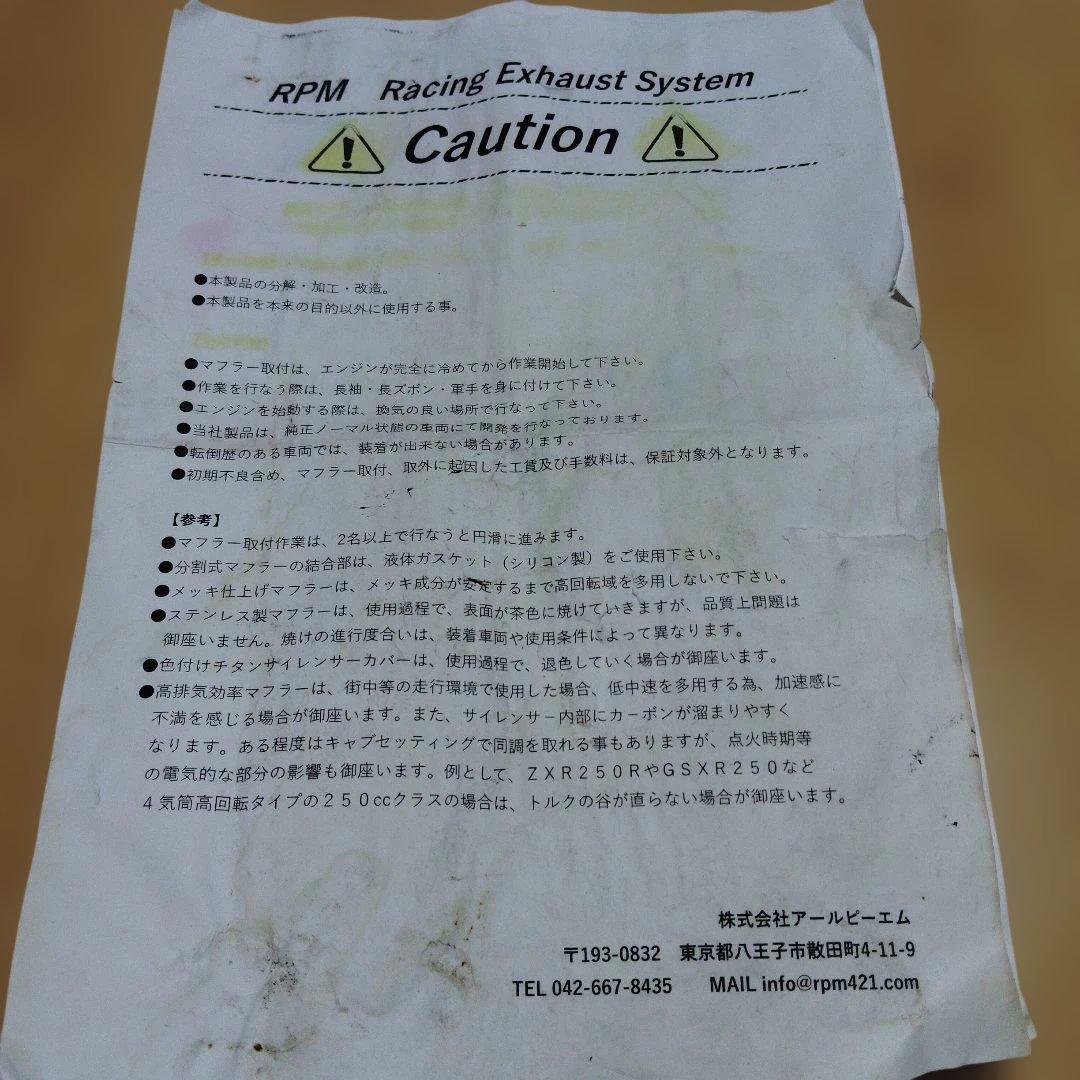 RPM Racing Exhaust System
Caution
●本製品の分解・加工・改造。
●本製品を本来の目的以外に使用する事。
●マフラー取付は、エンジンが完全に冷めてから作業開始して下さい。
●作業を行なう際は、長袖・長ズボン・軍手を身に付けて下さい。
●エンジンを始動する際は、換気の良い場所で行なって下さい。
●当社製品は、純正ノーマル状態の車両にて開発を行なっております。
●転倒歴のある車両では、装着が出来ない場合があります。
●初期不良含め、マフラー取付、取外に起因した工賃及び手数料は、保証対象外となります。
【参考】
●マフラー取付作業は、2名以上で行なうと円滑に進みます。
●分割式マフラーの結合部は、液体ガスケット（シリコン製）をご使用下さい。
●メッキ仕上げマフラーは、メッキ成分が安定するまで高回転域を多用しないで下さい。
●ステンレス製マフラーは、使用過程で、表面が茶色に焼けていきますが、品質上問題は
御座いません。焼けの進行度合いは、装着車両や使用条件によって異なります。
●色付けチタンサイレンサーカバーは、使用過程で、退色していく場合が御座います。
●高排気効率マフラーは、街中等の走行環境で使用した場合、低中速を多用する為、加速感に
不満を感じる場合が御座います。また、サイレンサー内部にカーボンが溜まりやすく
なります。ある程度はキャブセッティングで同調を取れる事もありますが、点火時期等
の電気的な部分の影響も御座います。例として、ＺＸＲ２５０ＲやＧＳＸＲ２５０など
４気筒高回転タイプの２５０ccクラスの場合は、トルクの谷が直らない場合が御座います。
株式会社アールピーエム
〒193-0832 東京都八王子市散田町4-11-9
TEL 042-667-8435 MAIL info@rpm421.com